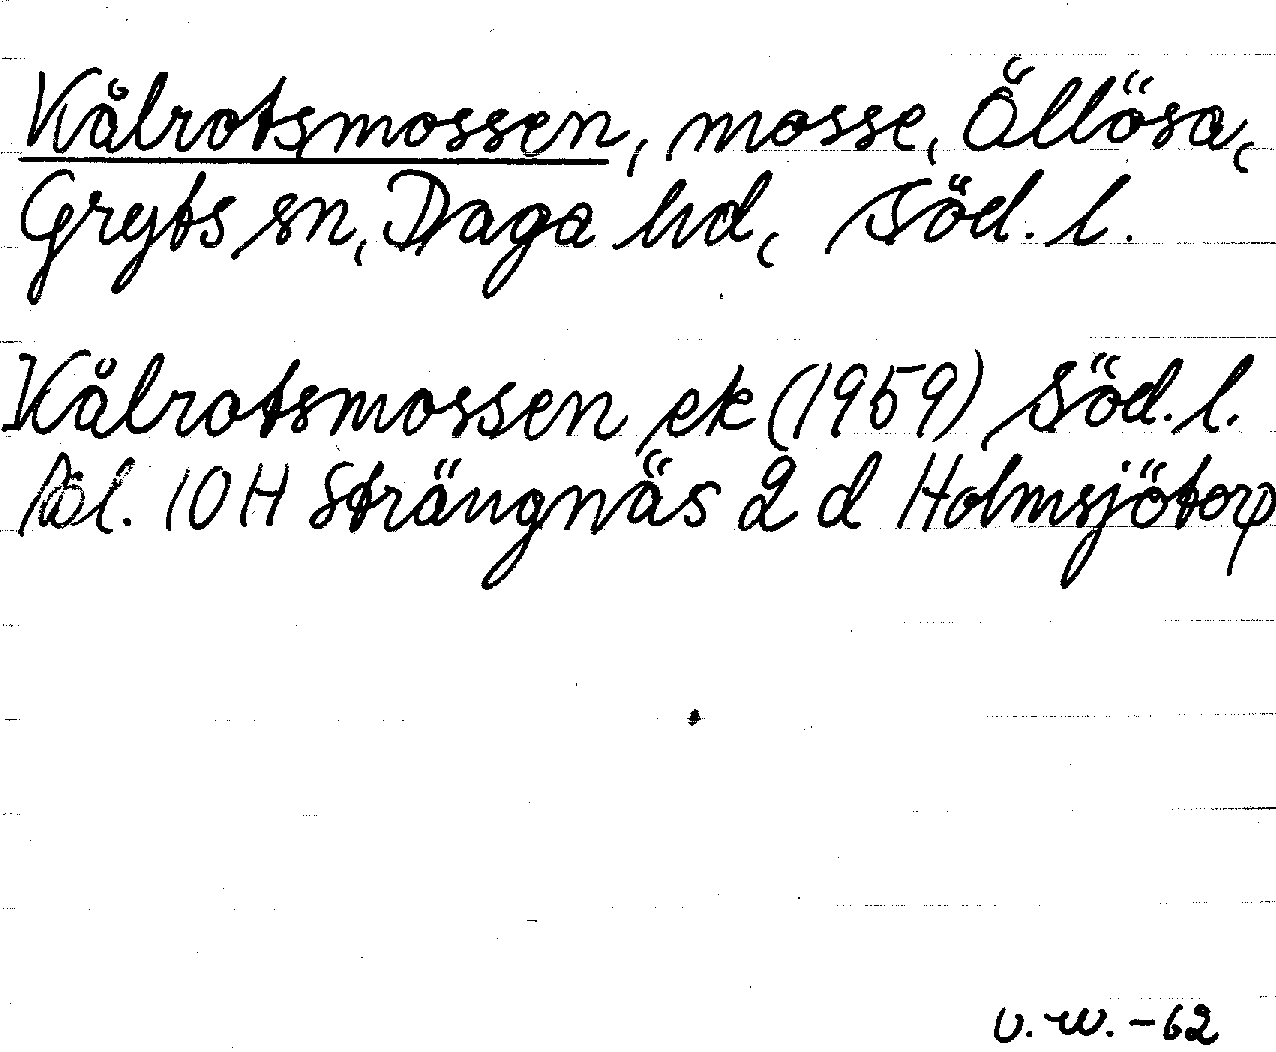 Kålrotsmossen, mosse, Öllösa,
Gryts sn, Daga hd, Söd. l.
Kålrotsmossen ek (1959) Söd. l.
bl. 10 H Strängnäs 2 d Holmsjötorp
U. W. - 62